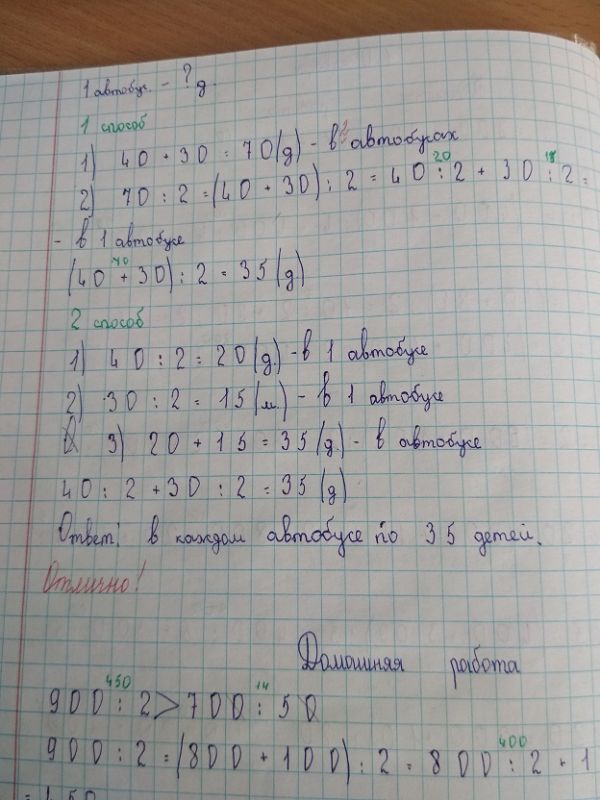 1 автобус. - ? д.
1 способ
1) 40 + 30 = 70 (д) - в 2 автобусах
20 15
2) 70 : 2 = (40 + 30) : 2 = 40 : 2 + 30 : 2 =
- в 1 автобусе
70
(40 + 30) : 2 = 35 (д)
2 способ
1) 40 : 2 = 20 (д.) - в 1 автобусе
2) 30 : 2 = 15 (м.) - в 1 автобусе
3) 20 + 15 = 35 (д.) - в автобусе
40 : 2 + 30 : 2 = 35 (д)
Ответ: в каждом автобусе по 35 детей.
Отлично!
Домашняя работа
450 14
900 : 2 > 700 : 50
400
900 : 2 = (800 + 100) : 2 = 800 : 2 + 1